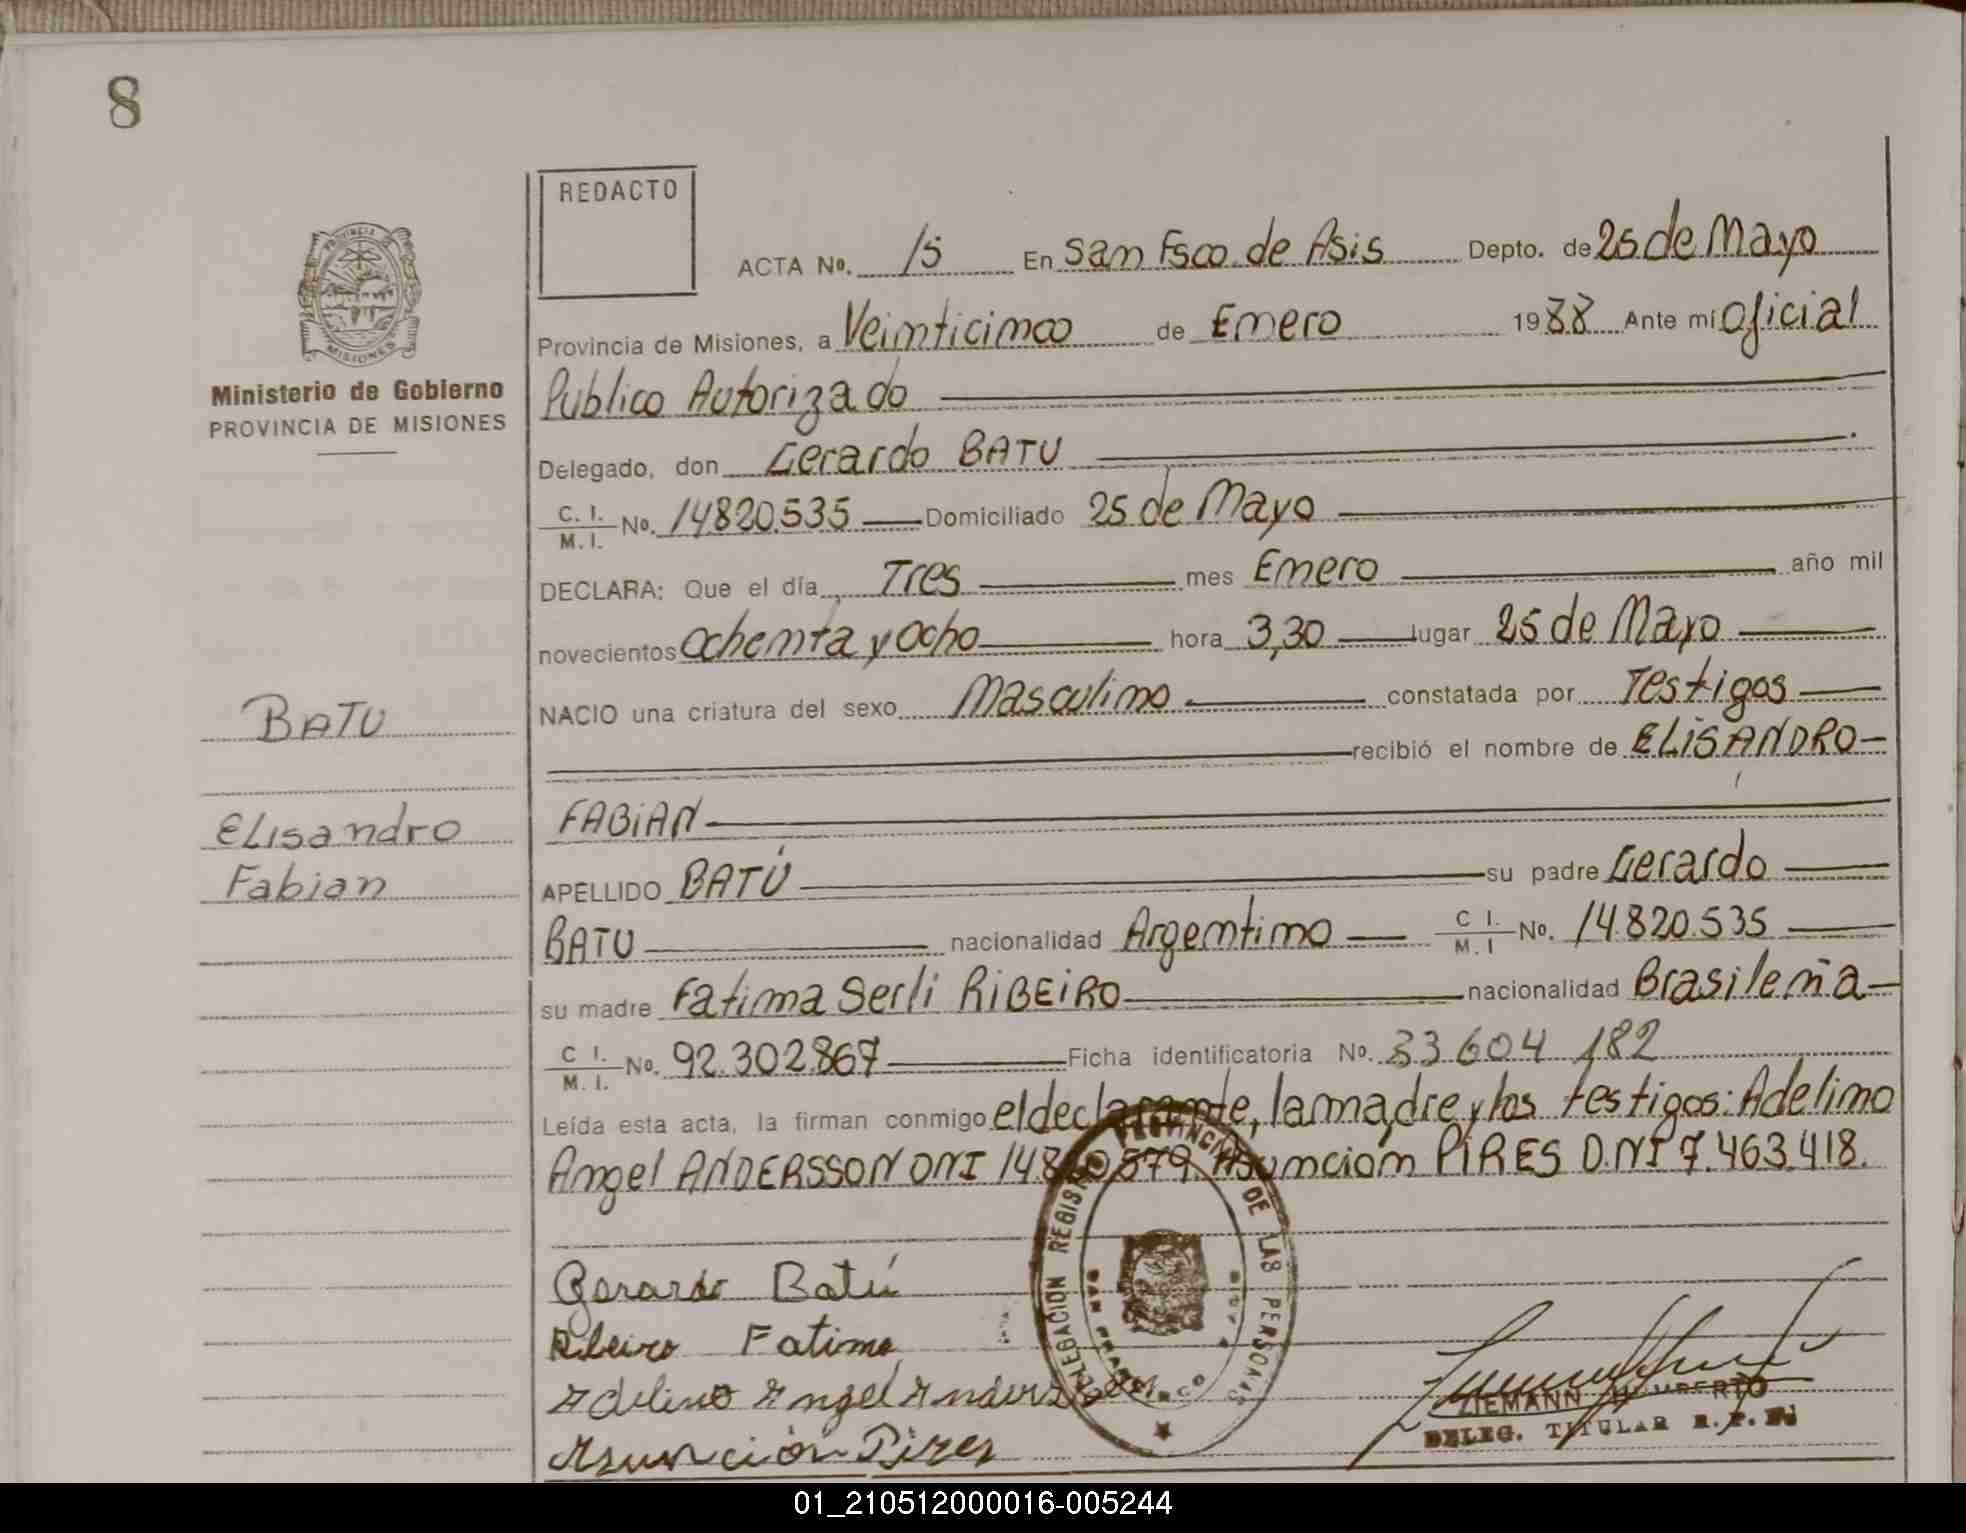 8
REDACTO
ACTA No. 15 En San Fsco. de Asis Depto. de 25 de Mayo
Provincia de Misiones, a Veinticinco de Enero 1988 Ante mí Oficial
Publico Autorizado
Delegado, don Gerardo BATU
C. I. / M. I. No. 14820.535 Domiciliado 25 de Mayo
DECLARA: Que el día Tres mes Enero año mil
novecientos Ochenta y Ocho hora 3,30 lugar 25 de Mayo
NACIO una criatura del sexo Masculino constatada por Testigos
recibió el nombre de ELISANDRO
FABIAN
APELLIDO BATÚ su padre Gerardo
BATU nacionalidad Argentino C I. / M. I No. 14.820.535
su madre Fatima Serli RIBEIRO nacionalidad Brasileña
C I. / M. I. No. 92.302.867 Ficha identificatoria No. 33.604 182
Leída esta acta, la firman conmigo el declarante, la madre y los testigos: Adelino
Angel ANDERSSON DNI 14.8 0.579 Asuncion PIRES D.NI 7.463.418.
Gerardo Batú
Ribeiro Fatima
Adelino Angel
Asunción Pires
PROVINCIA
MISIONES
Ministerio de Gobierno
PROVINCIA DE MISIONES
BATU
Elisandro
Fabian
DELEGACION REGIS PROVINCIAL DE LAS PERSONAS
SAN FRANCISCO
ZIEMANN HUMBERTO
DELEG. TITULAR R. P.
01_210512000016-005244